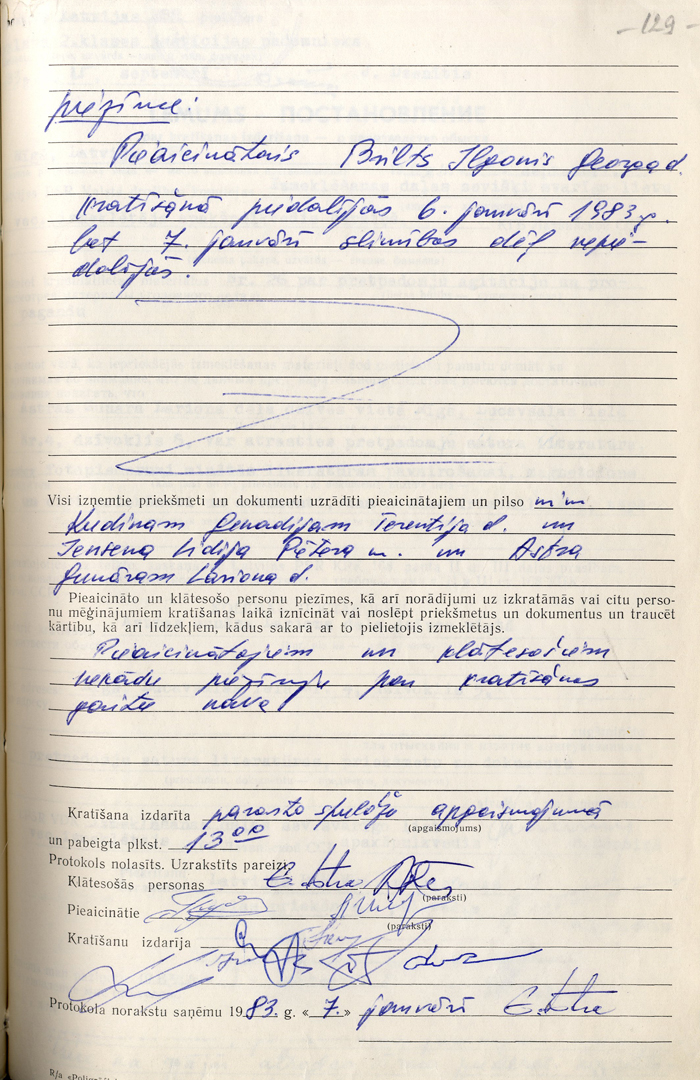 -129-
piezīme:
Pieaicinātais Brilts Ilgonis Georga d.
kratīšanā piedalījās 6. janvārī 1983.g.
bet 7. janvārī slimības dēļ nepie-
dalījās.
Visi izņemtie priekšmeti un dokumenti uzrādīti pieaicinātajiem un pilso ņiem
Kudinam Genadijam Terentija d. un
Jensena Lidija Pētera m. un Astra
Gunāram Lariona d.
Pieaicināto un klātesošo personu piezīmes, kā arī norādījumi uz izkratāmās vai citu perso-
nu mēģinājumiem kratīšanas laikā iznīcināt vai noslēpt priekšmetus un dokumentus un traucēt
kārtību, kā arī līdzekļiem, kādus sakarā ar to pielietojis izmeklētājs.
Pieaicinātajiem un klātesošiem
nekādu piezīmju par kratīšanas
gaitu nava
Kratīšana izdarīta parasto spuldžu apgaismojumā
(apgaismojums)
un pabeigta plkst. 13 00
Protokols nolasīts. Uzrakstīts pareizi.
Klātesošās personas
(paraksti)
Pieaicinātie
(paraksti)
Kratīšanu izdarīja
Protokola norakstu saņēmu 1983. g. «7.» janvārī
R/a